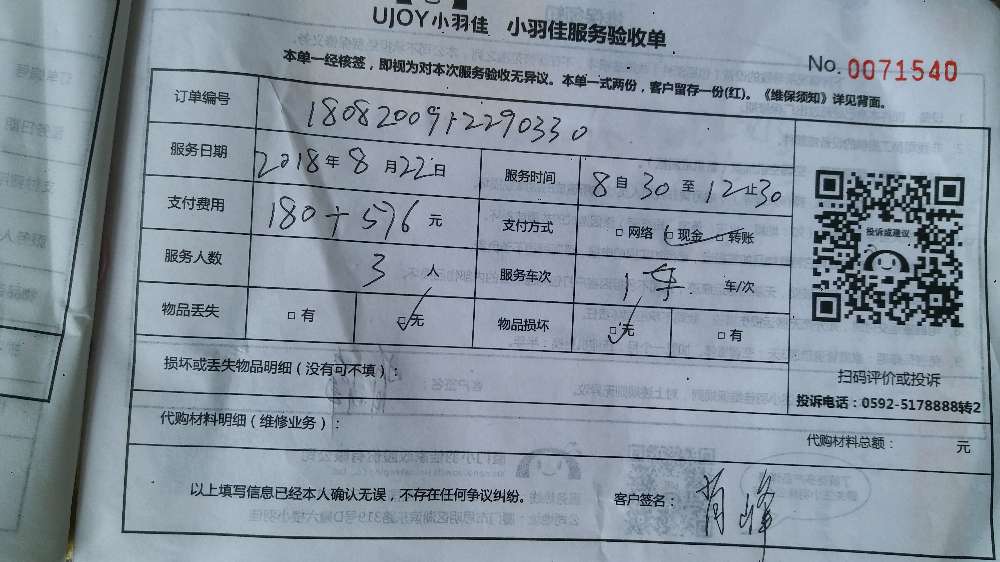 UJOY小羽佳 小羽佳服务验收单
No. 0071540
本单一经核签，即视为对本次服务验收无异议。本单一式两份，客户留存一份(红)。《维保须知》详见背面。
订单编号 1808200912290330
服务日期 2018年8月22日 服务时间 8自30至12止30
支付费用 180+576元 支付方式 □网络 □现金 □转账
服务人数 3人 服务车次 1车 车/次
物品丢失 □有 □无 物品损坏 □无 □有
投诉或建议
扫码评价或投诉
投诉电话：0592-5178888转2
损坏或丢失物品明细（没有可不填）：
代购材料明细（维修业务）：
代购材料总额： 元
以上填写信息已经本人确认无误，不存在任何争议纠纷。 客户签名：肖峰